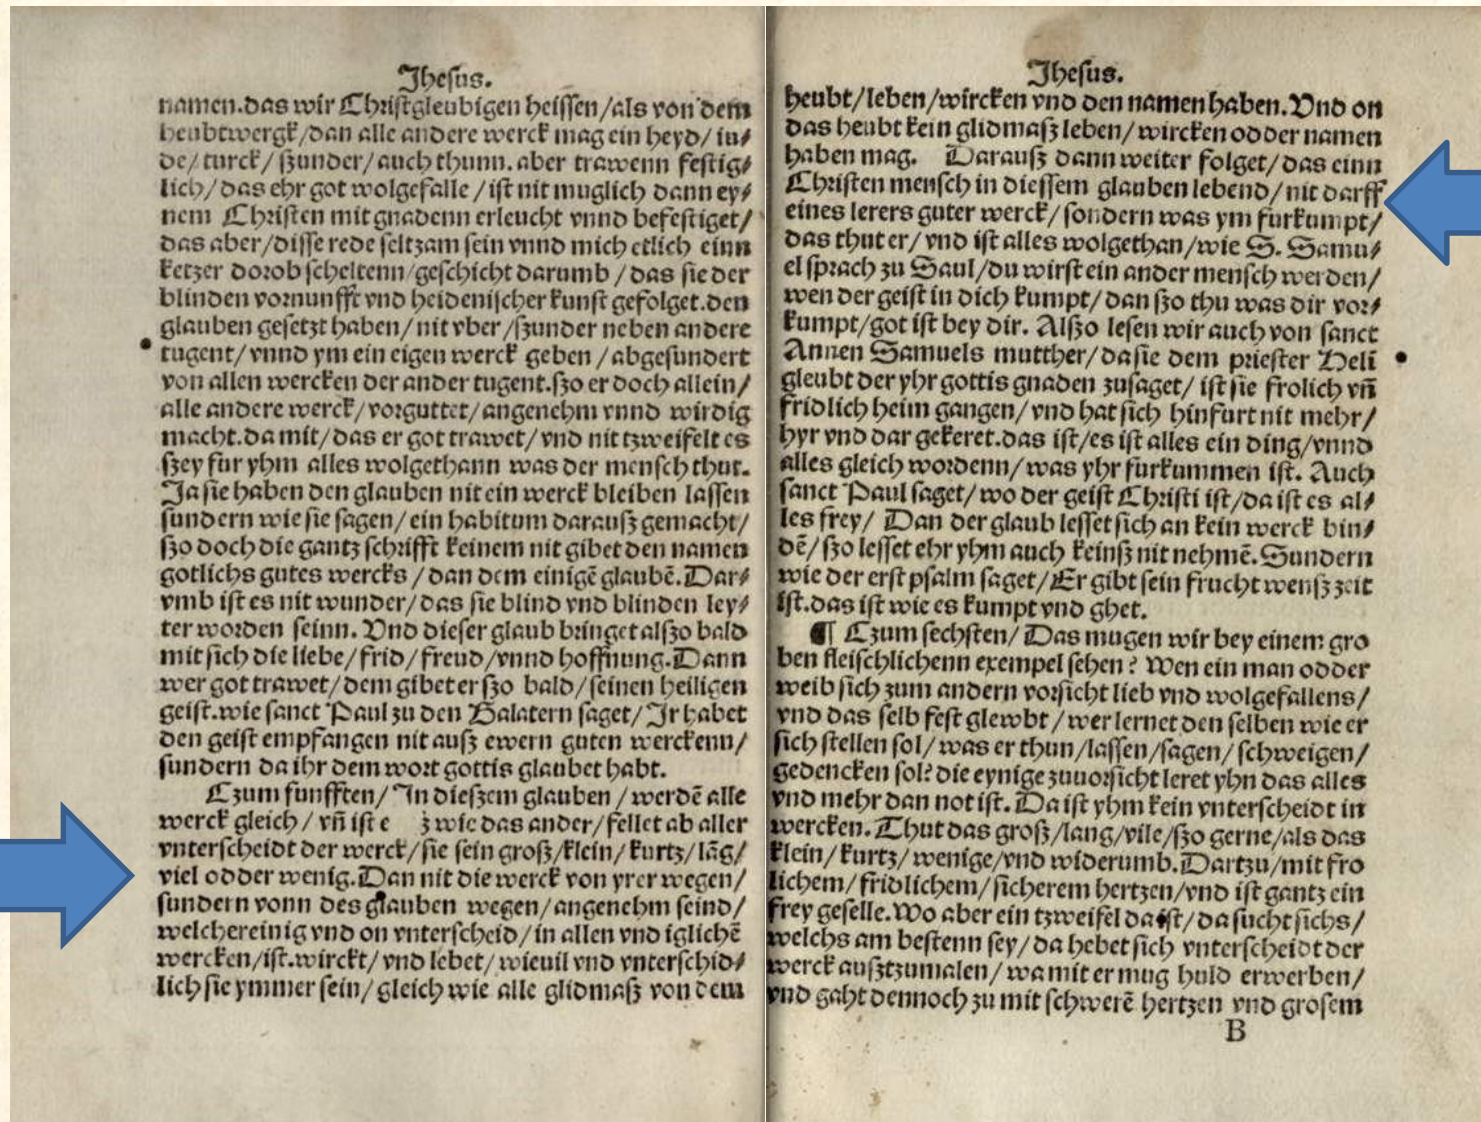 Jhesus.
namen.das wir Christgleubigen heissen/als von dem
heubtwergk/dan alle andere werck mag ein heyd/iu⸗
de/turck/szunder/auch thunn.aber trawenn festig⸗
lich/das ehr got wolgefalle/ist nit muglich dann ey⸗
nem Christen mit gnadenn erleucht vnnd befestiget/
das aber/disse rede seltzam sein vnnd mich etlich einn
ketzer dorob scheltenn/geschicht darumb/das sie der
blinden vornunfft vnd heidenischer kunst gefolget.den
glauben gesetzt haben/nit vber/szunder neben andere
tugent/vnnd ym ein eigen werck geben/abgesundert
von allen wercken der ander tugent.szo er doch allein/
alle andere werck/vorguttet/angenehm vnnd wirdig
macht.da mit/das er got trawet/vnd nit tzweifelt es
szey fur yhm alles wolgethann was der mensch thut.
Ja sie haben den glauben nit ein werck bleiben lassen
sundern wie sie sagen/ein habitum darausz gemacht/
szo doch die gantz schrifft keinem nit gibet den namen
gotlichs gutes wercks/dan dem einigē glaubē.Dar⸗
vmb ist es nit wunder/das sie blind vnd blinden ley⸗
ter worden seinn.Vnd dieser glaub bringet alszo bald
mit sich die liebe/frid/freud/vnnd hoffnung.Dann
wer got trawet/dem gibet er szo bald/seinen heiligen
geist.wie sanct Paul zu den Galatern saget/Ir habet
den geist empfangen nit ausz ewern guten werckenn/
sundern da ihr dem wort gottis glaubet habt.
Czum funfften/In dieszem glauben/werdē alle
werck gleich/vn̄ ist e z wie das ander/fellet ab aller
vnterscheidt der werck/sie sein grosz/klein/kurtz/lāg/
viel odder wenig.Dan nit die werck von yrer wegen/
sundern vonn des glauben wegen/angenehm seind/
welcher einig vnd on vnterscheid/in allen vnd iglichē
wercken/ist.wirckt/vnd lebet/wieuil vnd vnterschid⸗
lich sie ymmer sein/gleich wie alle glidmasz von dem
Jhesus.
heubt/leben/wircken vnd den namen haben.Vnd on
das heubt kein glidmasz leben/wircken odder namen
haben mag. Darausz dann weiter folget/das einn
Christen mensch in diessem glauben lebend/nit darff
eines lerers guter werck/sondern was ym furkumpt/
das thut er/vnd ist alles wolgethan/wie S. Samu⸗
el sprach zu Saul/du wirst ein ander mensch werden/
wen der geist in dich kumpt/dan szo thu was dir vor⸗
kumpt/got ist bey dir. Alszo lesen wir auch von sanct
Annen Samuels mutther/da sie dem priester Heli
gleubt der yhr gottis gnaden zusaget/ist sie frolich vn̄
fridlich heim gangen/vnd hat sich hinfurt nit mehr/
hyr vnd dar gekeret.das ist/es ist alles ein ding/vnnd
alles gleich wordenn/was yhr furkummen ist. Auch
sanct Paul saget/wo der geist Christi ist/da ist es al⸗
les frey/ Dan der glaub lesset sich an kein werck bin⸗
dē/szo lesset ehr yhm auch keinsz nit nehmē.Sundern
wie der erst psalm saget/Er gibt sein frucht wensz zeit
ist.das ist wie es kumpt vnd ghet.
¶ Czum sechsten/Das mugen wir bey einem gro
ben fleischlichenn exempel sehen? Wen ein man odder
weib sich zum andern vorsicht lieb vnd wolgefallens/
vnd das selb fest glewbt/wer lernet den selben wie er
sich stellen sol/was er thun/lassen/sagen/schweigen/
gedencken sol? die eynige zuuorsicht leret yhn das alles
vnd mehr dan not ist.Da ist yhm kein vnterscheidt in
wercken.Thut das grosz/lang/vile/szo gerne/als das
klein/kurtz/wenige/vnd widerumb.Dartzu/mit fro
lichem/fridlichem/sicherem hertzen/vnd ist gantz ein
frey geselle.Wo aber ein tzweifel da ist/da sucht sichs/
welchs am bestenn sey/da hebet sich vnterscheidt der
werck ausztzumalen/wa mit er mug huld erwerben/
vnd gaht dennoch zu mit schwerē hertzen vnd grosem
B